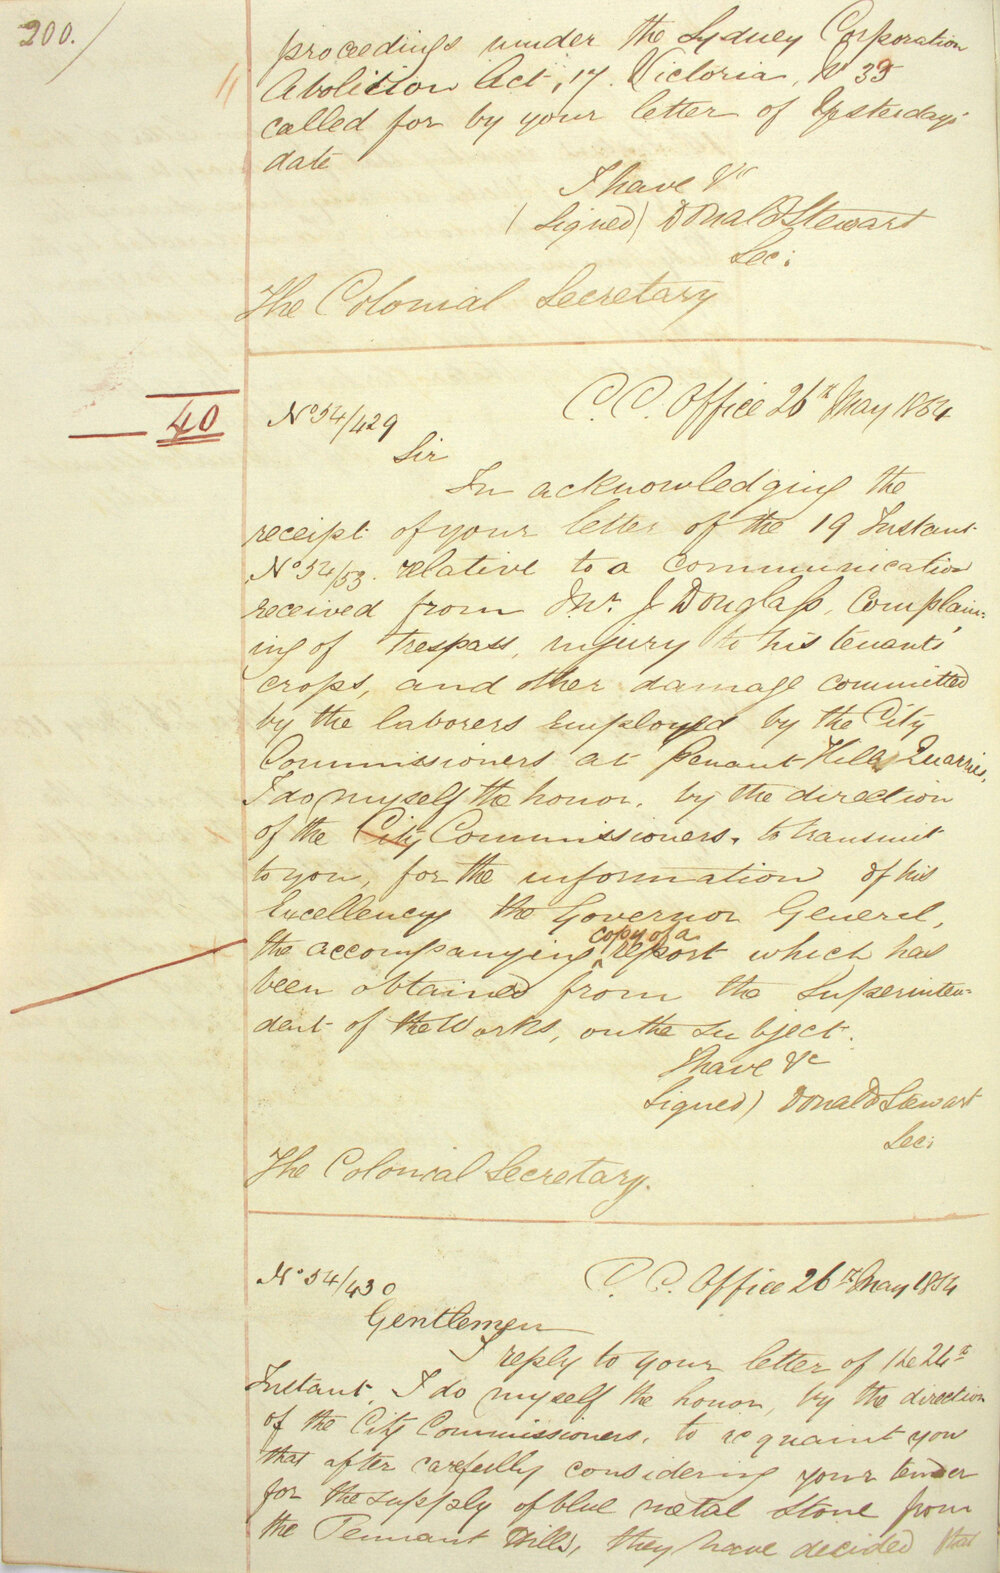 200.
proceedings under the Sydney Corporation
Abolition Act, 17. Victoria, No 33
called for by your letter of Yesterdays
date
I have &c
(Signed) Donald Stewart
Sec:
The Colonial Secretary
40
No 54/429
C. C. Office 26th May 1854
Sir
In acknowledging the
receipt of your letter of the 19 Instant
No 54/53. relative to a communication
received from Mr. J Douglass, Complain:
ing of trespass, injury to his tenants'
crops, and other damage committed
by the laborers employed by the City
Commissioners at Penant Hills Quarries,
I do myself the honor, by the direction
of the City Commissioners, to transmit
to you, for the information of his
Excellency the Governor General,
copy of a
the accompanying report which has
been obtained from the Superinten=
dent of the Works, on the subject.
I have &c
Signed) Donald Stewart
Sec:
The Colonial Secretary.
No 54/430
C. C. Office 26th May 1854
Gentlemen
I reply to your letter of the 24th
Instant, I do myself the honor, by the direction
of the City Commissioners, to acquaint you
that after carefully considering your tender
for the supply of blue metal stone from
the Pennant Hills, they have decided that